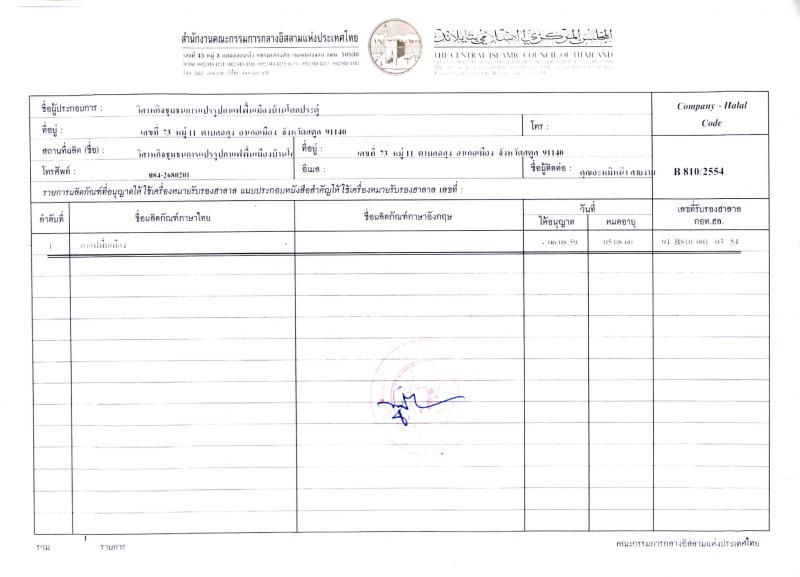 สำนักงานคณะกรรมการกลางอิสลามแห่งประเทศไทย
THE CENTRAL ISLAMIC COUNCIL OF THAILAND
ชื่อผู้ประกอบการ : วิสาหกิจชุมชนการแปรรูปกาแฟพื้นเมืองบ้านโคกประดู่
Company - Halal
Code
ที่อยู่ : เลขที่ 73 หมู่ 11 ตำบลฉลุง อำเภอเมือง จังหวัดสตูล 91140
โทร :
สถานที่ผลิต (ชื่อ) : วิสาหกิจชุมชนการแปรรูปกาแฟพื้นเมืองบ้านโค
ที่อยู่ : เลขที่ 73 หมู่ 11 ตำบลฉลุง อำเภอเมือง จังหวัดสตูล 91140
โทรศัพท์ : 084-2680201
อีเมล :
ชื่อผู้ติดต่อ :
B 810/2554
รายการผลิตภัณฑ์ที่อนุญาตให้ใช้เครื่องหมายรับรองฮาลาล แนบประกอบหนังสือสำคัญให้ใช้เครื่องหมายรับรองฮาลาล เลขที่ :
ลำดับที่
ชื่อผลิตภัณฑ์ภาษาไทย
ชื่อผลิตภัณฑ์ภาษาอังกฤษ
วันที่
ให้อนุญาต
หมดอายุ
เลขที่รับรองฮาลาล
กอท.ฮล.
1 กาแฟพื้นเมือง - 06 08 59 05 08 60 94 B810 001 03 54
รวม 1 รายการ
คณะกรรมการกลางอิสลามแห่งประเทศไทย